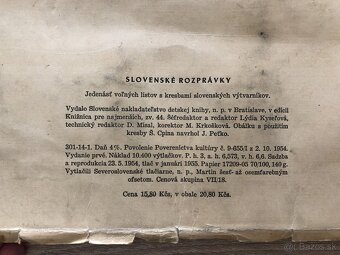 SLOVENSKÉ ROZPRÁVKY
Jedenásť voľných listov s kresbami slovenských výtvarníkov.
Vydalo Slovenské nakladateľstvo detskej knihy, n. p. v Bratislave, v edícii
Knižnica pre najmenších, zv. 44. Šéfredaktor a redaktor Lýdia Kyseľová,
technický redaktor D. Misal, korektor M. Krkošková. Obálku s použitím
kresby Š. Cpina navrhol J. Peťko.
301-14-1. Daň 4%. Povolenie Povereníctva kultúry č. 9-655/I z 2. 10. 1954.
Vydanie prvé. Náklad 10.400 výtlačkov. P. h. 3, a. h. 6,573, v. h. 6,6. Sadzba
a reprodukcia 23. 5. 1954, tlač v januári 1955. Papier 17209-05 70/100, 140 g.
Vytlačili Severoslovenské tlačiarne, n. p., Martin šesť- až osemfarebným
ofsetom. Cenová skupina VII/18.
Cena 15,80 Kčs, v obale 20,80 Kčs.
bazos.sk